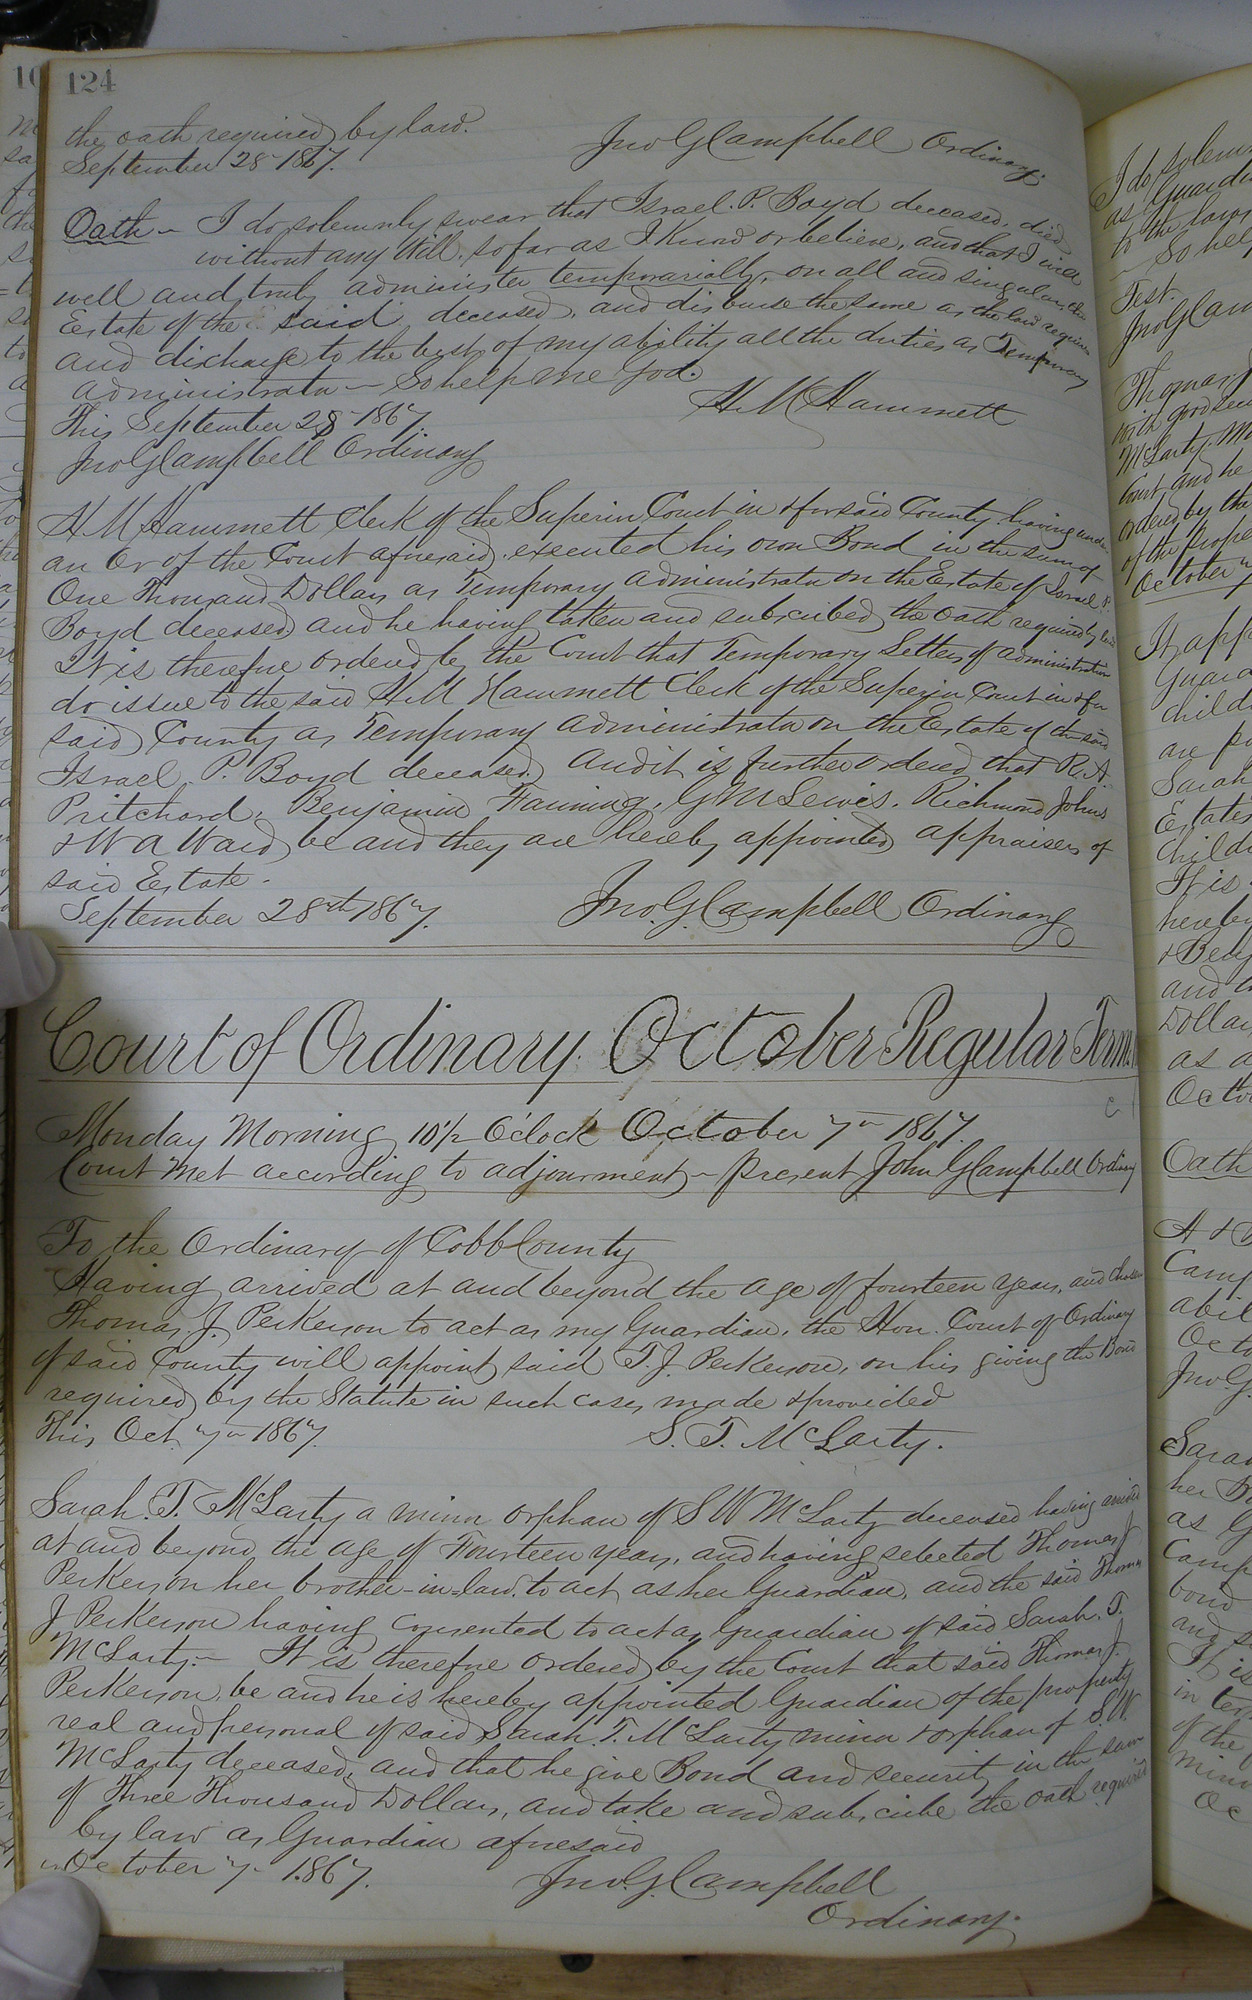 124
the oath required by law.
September 28th 1867. Jno G Campbell Ordinary.
Oath ~ I do solemnly swear that Israel. P. Boyd deceased, died
without any Will. so far as I Know or believe, and that I will
well and truly administer temporarially, on all and singular the
Estate of the said deceased, and disburse the same as the law requires
and discharge to the best of my ability all the duties as Temporary
Administrator ~ So help me God.
This September 28th 1867. H. M Hammett
Jno G Campbell Ordinary
H M Hammett Clerk of the Superior Court in & for said County having under
an Or of the Court aforesaid. executed his own Bond in the sum of
One Thousand Dollars as Temporary Administrator on the Estate of Israel P.
Boyd deceased, and he having taken and subscribed the oath required by law
It is therefore ordered by the Court that Temporary Letters of administration
do issue to the said H. M Hammett Clerk of the Superior Court in & for
said County as Temporary Administrator on the Estate of the said
Israel. P. Boyd deceased. And it is further ordered that R. A.
Pritchard, Benjamin Fanning, G M Lewis. Richmond Johns
& W A Ward be and they are hereby appointed appraisers of
said Estate.
September 28th 1867. Jno. G. Campbell Ordinary
Court of Ordinary. October Regular Term.
Monday Morning 10 1/2 O'clock October 7th 1867.
Court Met according to adjournment ~ present John G Campbell Ordinary
To the Ordinary of Cobb County
Having arrived at and beyond the age of fourteen years, and chosen
Thomas J. Perkerson to act as my Guardian, the Hon. Court of Ordinary
of said County will appoint said T. J. Perkerson, on his giving the Bond
required by the Statute in such cases made & provided
This Oct. 7th 1867. S. T. McLarty.
Sarah. T. McLarty a minor orphan of S W McLarty deceased having arrived
at and beyond the age of Fourteen years, and having selected Thomas J
Perkerson her brother-in-law. to act as her Guardian, and the said Thomas
J Perkerson having consented to act as Guardian of said Sarah. T.
McLarty.~ It is therefore ordered by the Court that said Thomas J.
Perkerson, be and he is hereby appointed Guardian of the property
real and personal of said Sarah. T. McLarty minor & orphan of S. W.
McLarty deceased, and that he give Bond and security in the sum
of Three Thousand Dollars, and take and subscribe the oath required
by law as Guardian aforesaid
October 7th 1867. Jno. G. Campbell
Ordinary.
I do solem
as Guardi
to the law
So help
Test.
Jno G Cam
Thomas J
with good secu
McLarty. Mi
Court, and he
ordered by the
of the prope
October
It app
Guard
child
are
Sarah
Estate
Child
It is
hereby
& Benj
and
Dollar
as a
Octo
Oath
Camp
abil
Octo
Jno. G.
Sarah
her
as G
Camp
bond
and s
It is
in ter
of the
mino
Oc